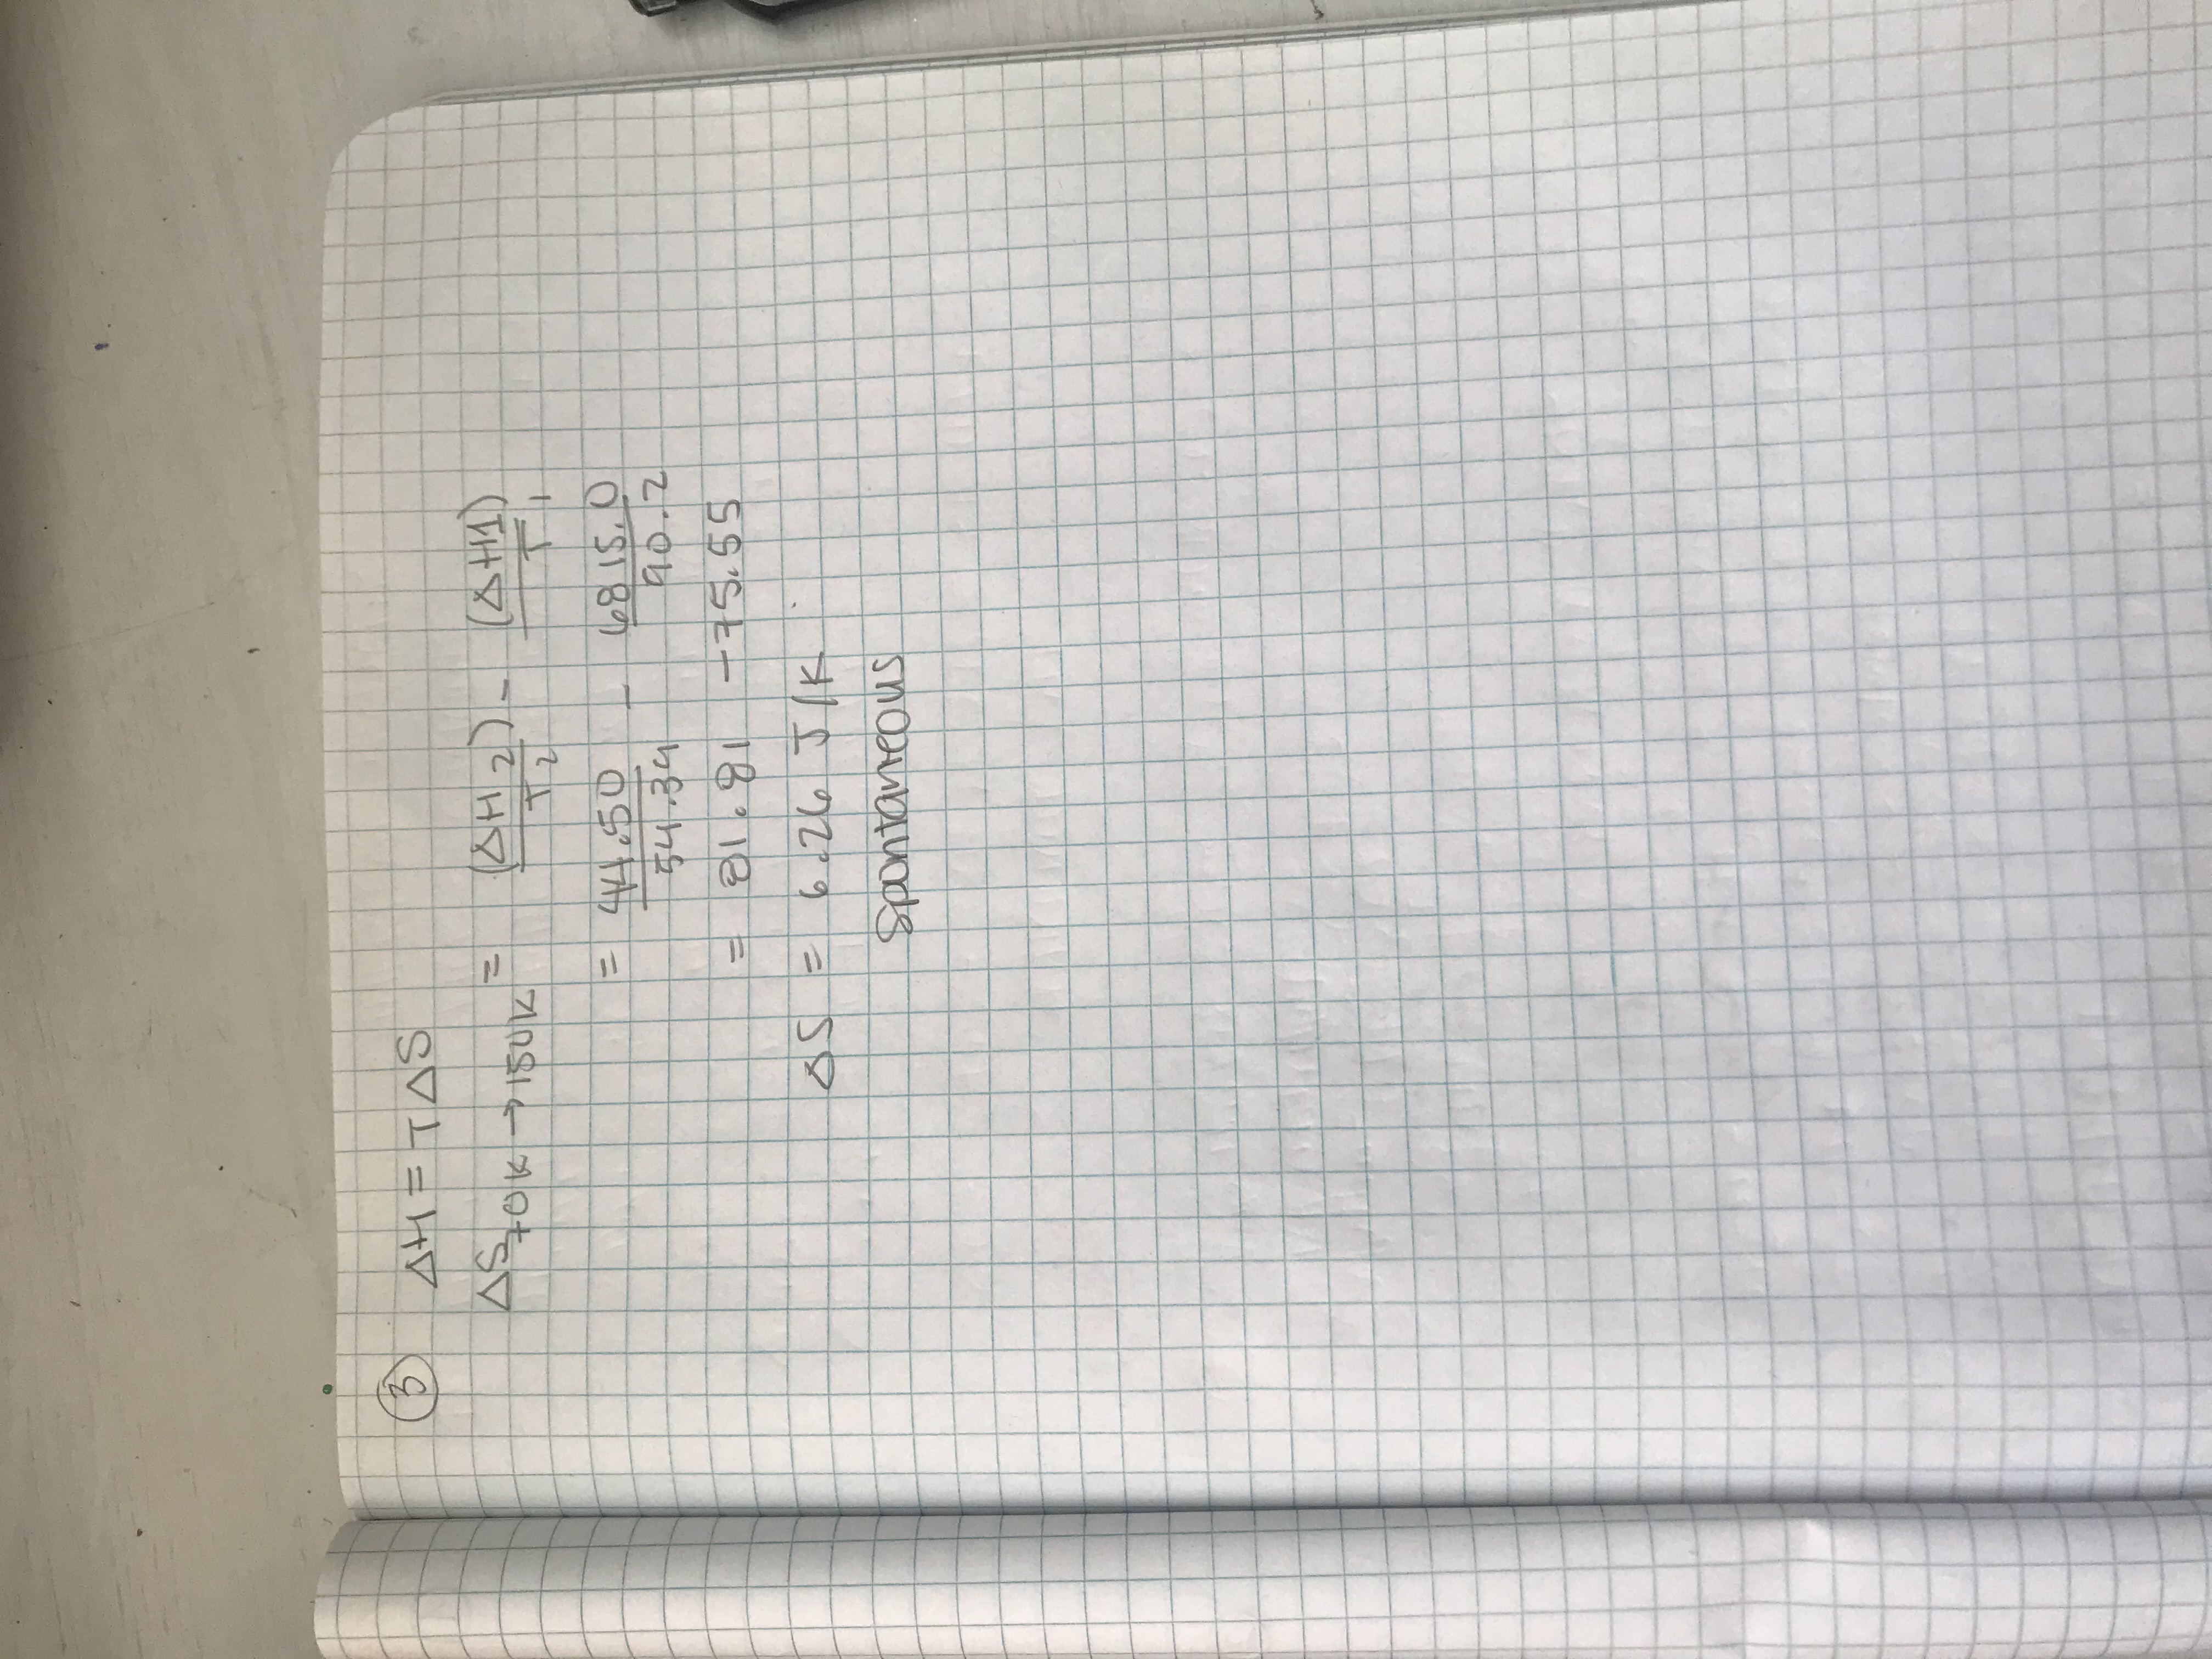 ③ ΔH = TΔS
ΔS70K → 150K = (ΔH2)/T2 - (ΔH1)/T1
= 44.50/54.39 - 6815.0/90.2
= 81.81 - 75.55
ΔS = 6.26 J/K
Spontaneous